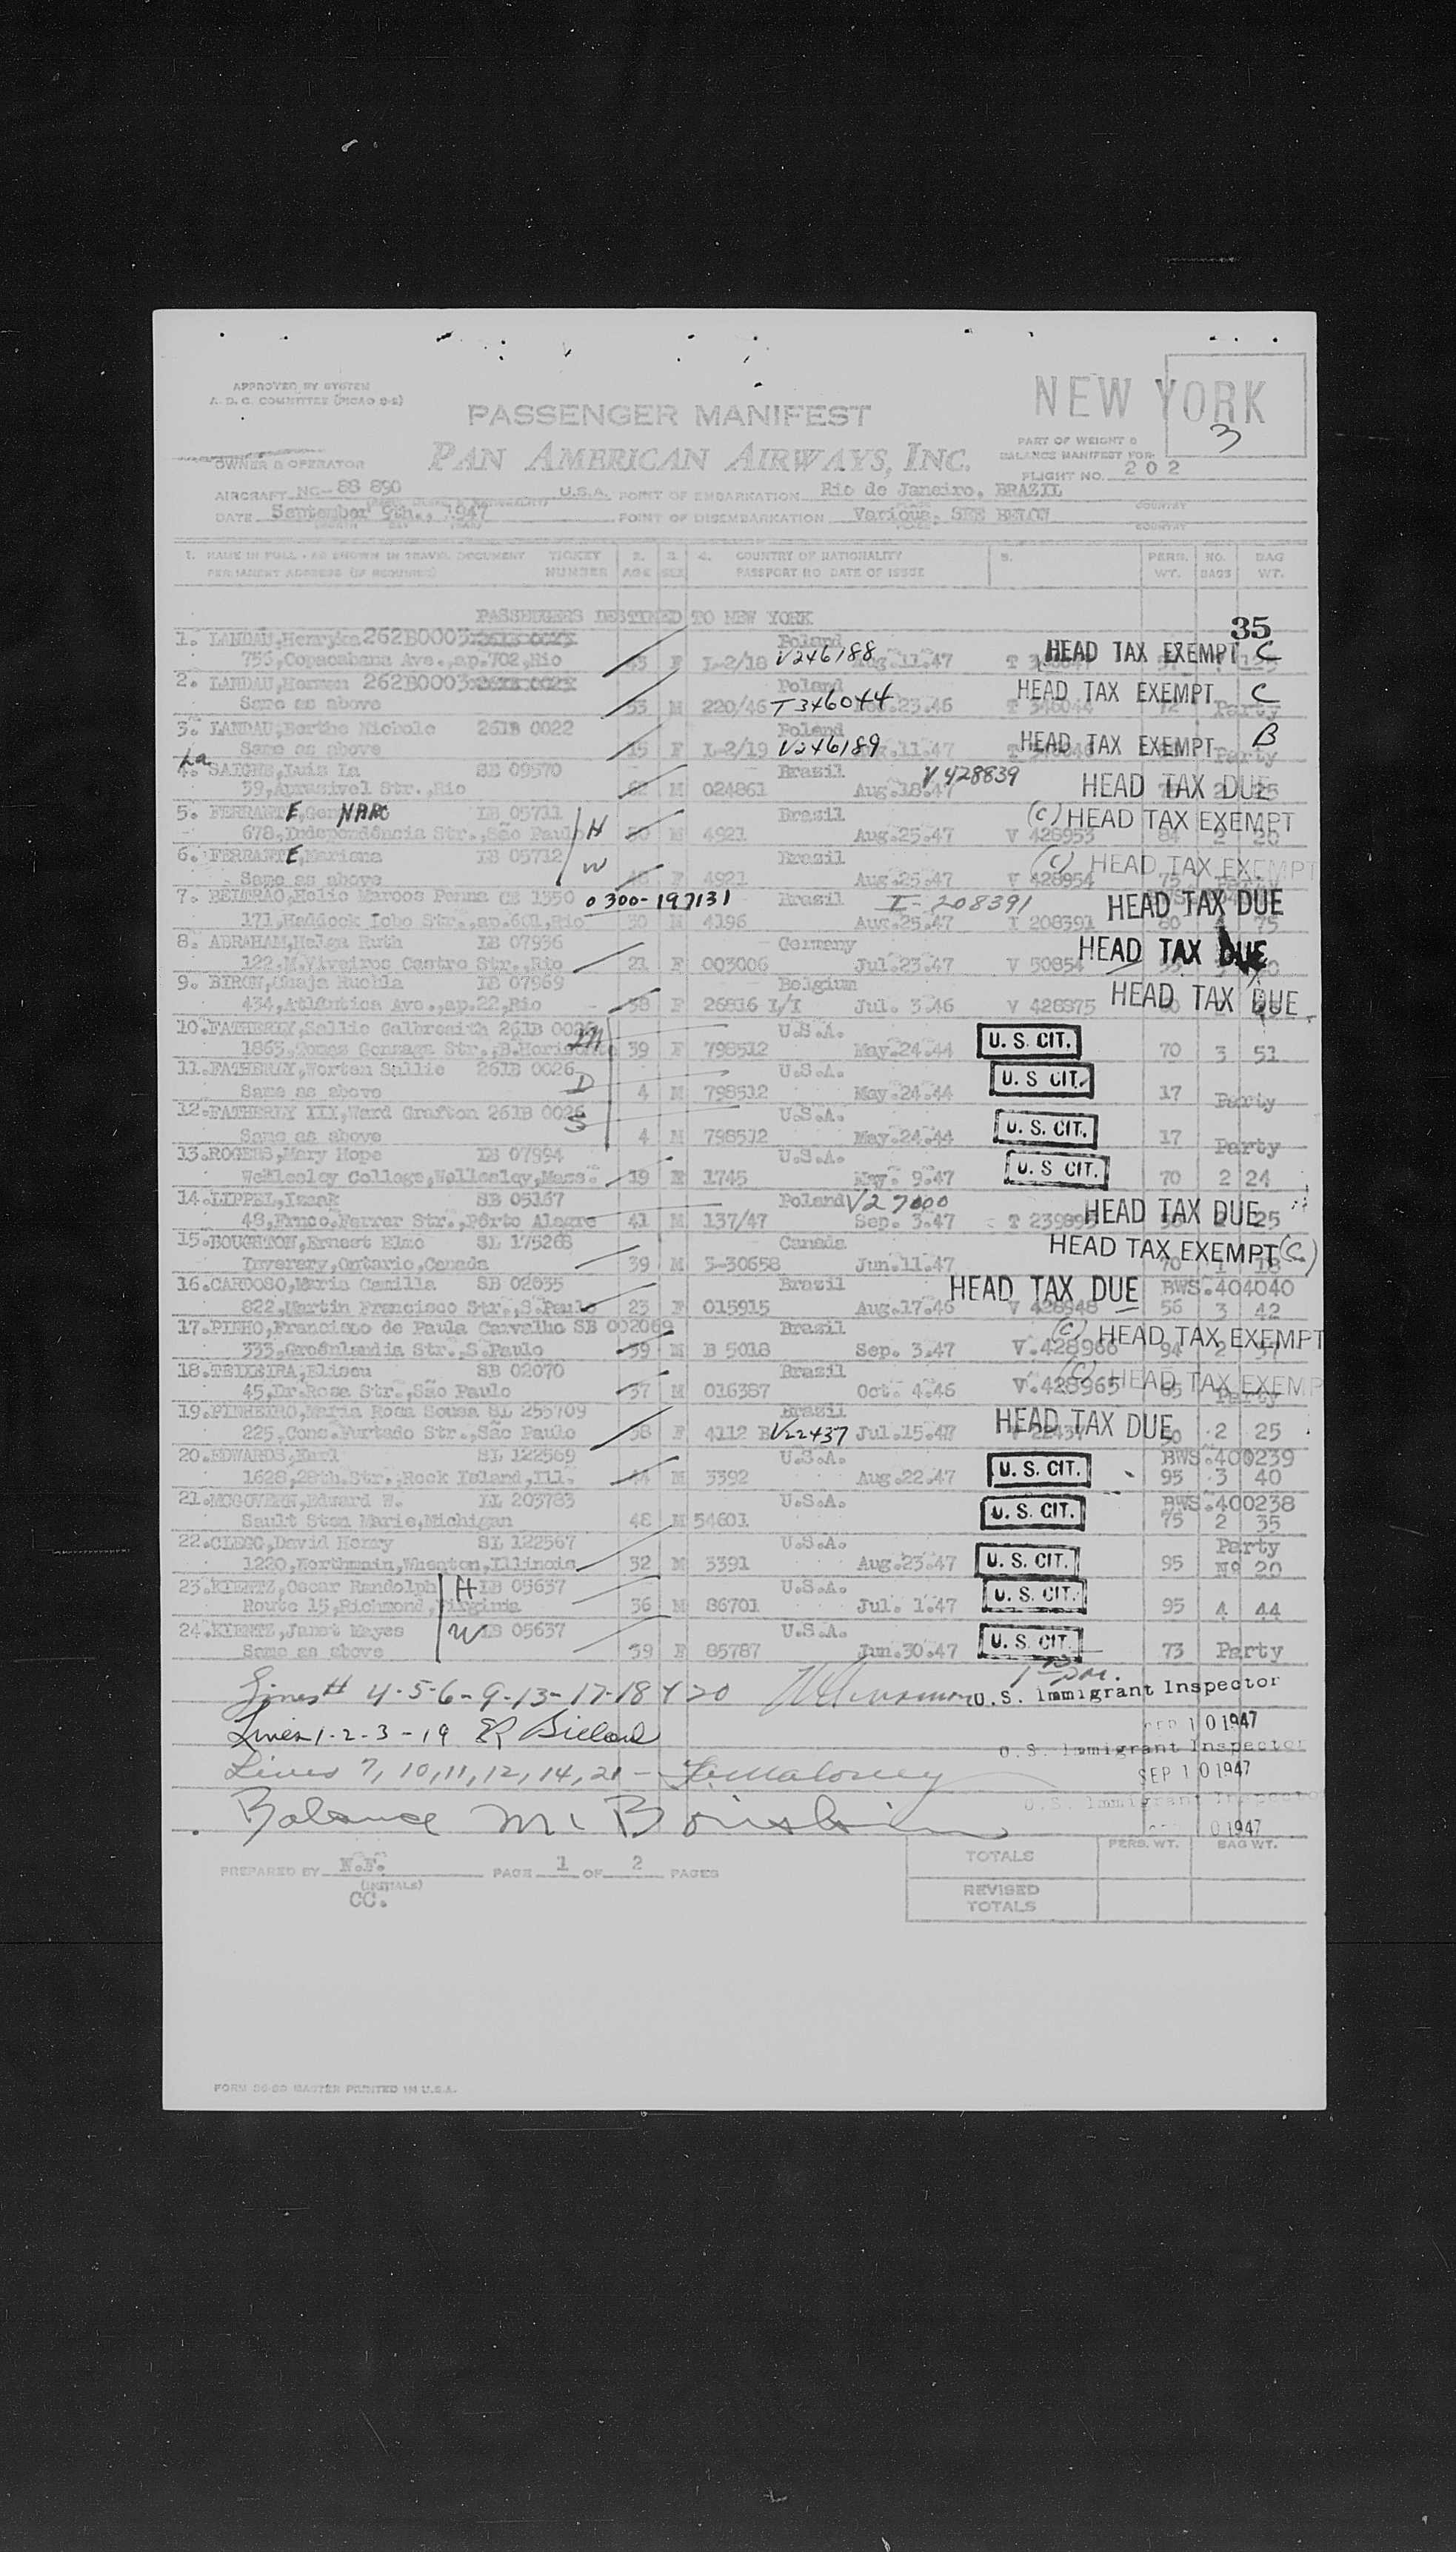 APPROVED BY SYSTEM
A. D. C. COMMITTEE (PICAO 9-2)
NEW YORK
3
PASSENGER MANIFEST
PART OF WEIGHT &
BALANCE MANIFEST FOR
OWNER & OPERATOR PAN AMERICAN AIRWAYS, INC.
FLIGHT NO. 202
AIRCRAFT NC- 88 890 U.S.A. POINT OF EMBARKATION Rio de Janeiro, BRAZIL COUNTRY
DATE September 9th., 1947 POINT OF DISEMBARKATION Various. SEE BELOW COUNTRY
1. NAME IN FULL - AS SHOWN IN TRAVEL DOCUMENT TICKET 2. 3. 4. COUNTRY OF NATIONALITY 5. PERS. NO. BAG
PERMANENT ADDRESS (IF REQUIRED) NUMBER AGE SEX PASSPORT NO DATE OF ISSUE WT. BAGS WT.
PASSENGERS DESTINED TO NEW YORK
35
1. LANDAU,Henryka 262B0003 Poland
756,Copacabana Ave.,ap.702,Rio F L-2/18 V246188 Aug.11.47 T HEAD TAX EXEMPT C
2. LANDAU,Herman 262B0003 Poland
Same as above 53 M 220/46 T346044 23.46 T 346044 HEAD TAX EXEMPT C Party
3. LANDAU,Berthe Nichole 261B 0022 Poland
Same as above 15 F L-2/19 V246189 11.47 HEAD TAX EXEMPT B Party
La
4. SAIGNE,Luis La SB 09570 Brasil V428839
39, Str.,Rio 62 M 024861 Aug.18.47 HEAD TAX DUE 25
5. FERRANTE,Gen NARO IB 05711 Brasil
678,Independência Str.,São Paulo H 50 M 4921 Aug.25.47 V 428953 (C) HEAD TAX EXEMPT 84 2 20
6. FERRANTE,Mariana IB 05712 Brasil
Same as above W F 4921 Aug.25.47 V 428954 (C) HEAD TAX EXEMPT 75
7. BELTRAO,Helio Marcos Penna CB 1350 0300-197131 Brasil I-208391
171,Haddock Lobo Str.,ap.601,Rio 30 M 4196 Aug.25.47 I 208391 HEAD TAX DUE 80 75
8. ABRAHAM,Helga Ruth IB 07956 Germany
122,M.Viveiros Castro Str.,Rio 21 F 003006 Jul.23.47 V 50854 HEAD TAX DUE
9. BIRON,Chaja Ruchla IB 07969 Belgium
434,Atlântica Ave.,ap.22,Rio 58 F 26816 I/I Jul. 3.46 V 428875 HEAD TAX DUE
10.FATHERLY,Sallie Galbreaith 261B 0026 U.S.A.
1863,Tomas Gonzaga Str.,B.Horisonte M 39 F 798512 May.24.44 U. S. CIT. 70 3 51
11.FATHERLY,Worten Sallie 261B 0026 U.S.A.
Same as above D 4 M 798512 May.24.44 U. S CIT. 17 Party
12.FATHERLY III,Ward Grafton 261B 0026 U.S.A.
Same as above S 4 M 798512 May.24.44 U. S. CIT. 17 Party
13.ROGERS,Mary Hope IB 07994 U.S.A.
Wellesley College,Wellesley,Mass. 19 F 1745 May. 9.47 U. S CIT. 70 2 24
14.LIPPEL,Izaak SB 05167 Poland V27000
48,Frnco.Ferrer Str.,Pôrto Alegre 41 M 137/47 Sep. 3.47 T 23989 HEAD TAX DUE 25
15.BOUGHTON,Ernest Elmo SL 175268 Canada
Inverary,Ontario,Canada 39 M 3-30658 Jun.11.47 HEAD TAX EXEMPT (C) 70 1 18
16.CARDOSO,Maria Camilla SB 02835 Brasil BWS.404040
822,Martin Francisco Str.,S.Paulo 23 F 015915 Aug.17.46 V 428948 HEAD TAX DUE 56 3 42
17.PINHO,Francisco de Paula Carvalho SB 002069 Brasil
333,Groênlandia Str.,S.Paulo 39 M B 5018 Sep. 3.47 V.428966 (C) HEAD TAX EXEMPT 94 2
18.TEIXEIRA,Eliseu SB 02070 Brasil
45,Dr.Rosa Str.,São Paulo 37 M 016387 Oct. 4.46 V.428965 (C) HEAD TAX EXEMP 65 Party
19.PINHEIRO,Maria Rosa Sousa SL 255709 Brasil
225,Cons.Furtado Str.,São Paulo 38 F 4112 V22437 Jul.15.47 HEAD TAX DUE 50 2 25
20.EDWARDS,Earl SL 122569 U.S.A. BWS.400239
1628,28th.Str.,Rock Island,Ill. 44 M 3392 Aug.22.47 U. S. CIT. 95 3 40
21.MCGOVERN,Edward W. LL 203783 U.S.A. BWS.400238
Sault Sten Marie,Michigan 48 M 54601 U. S. CIT. 75 2 35
22.CLEGG,David Henry SL 122567 U.S.A. Party
1220,Northmain,Wheaton,Illinois 32 M 3391 Aug.23.47 U. S. CIT. 95 Nº 20
23.KIENTZ,Oscar Randolph H IB 05637 U.S.A.
Route 15,Richmond,Virginia 36 M 86701 Jul. 1.47 U. S. CIT. 95 4 44
24.KIENTZ,Janet Mayes W IB 05637 U.S.A.
Same as above 39 F 85787 Jun.30.47 U. S. CIT. 73 Party
Lines # 4-5-6-9-13-17-18 & 20 U.S. Immigrant Inspector
SEP 10 1947
Lines 1-2-3-19 U.S. Immigrant Inspector
Lines 7, 10, 11, 12, 14, 21 - Maloney SEP 10 1947
U.S. Immigrant Inspector
Balance 0 1947
PREPARED BY N.F. PAGE 1 OF 2 PAGES TOTALS PERS. WT. BAG WT.
(INITIALS)
CC.
REVISED
TOTALS
FORM MASTER PRINTED IN U.S.A.